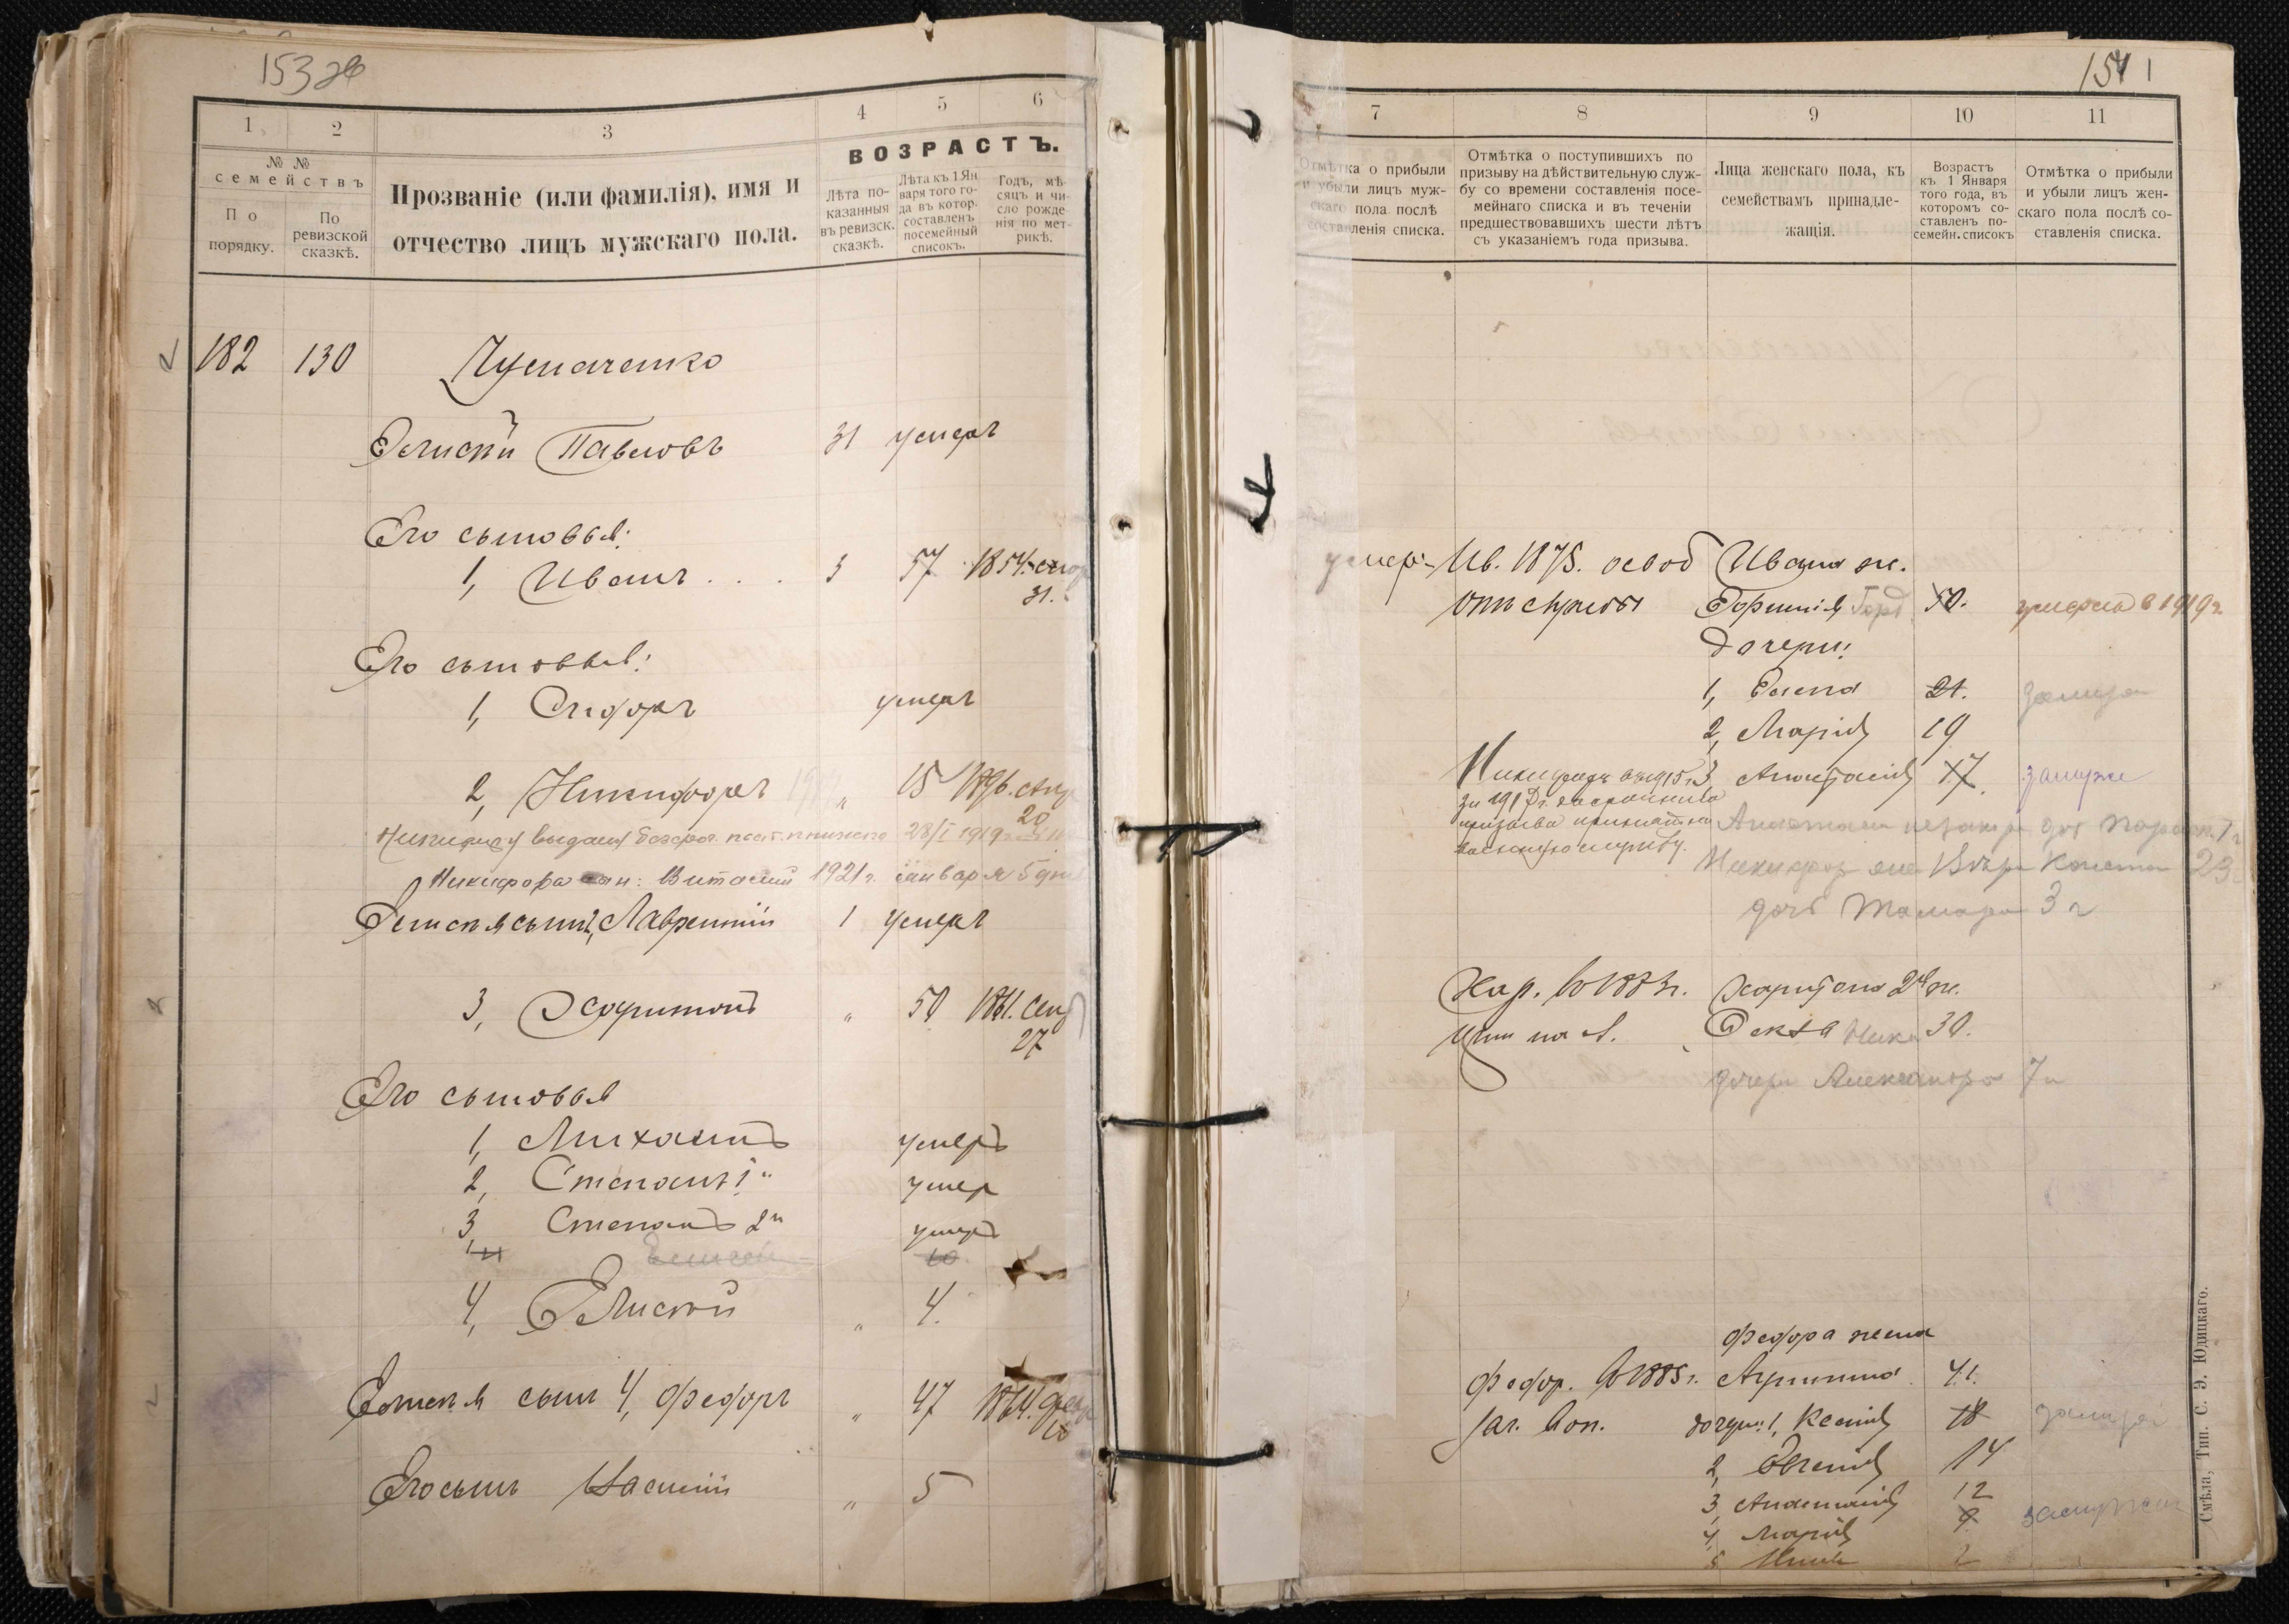 153 об
1
2
3
4
5
6
№ №
семействъ
По порядку.
По ревизской сказкѣ.
Прозваніе (или фамилія), имя и
отчество лицъ мужскаго пола.
ВОЗРАСТЪ.
Лѣта по-
казанныя
въ ревизск.
сказкѣ.
Лѣта къ 1 Ян
варя того го-
да въ котор.
составленъ
посемейный
списокъ.
Годъ, мѣ-
сяцъ и чи-
сло рожде
нія по мет-
рикѣ.
182 130
Елисѣй Павловъ 31 умеръ
Его сыновья:
1, Иванъ . . . 3 57 1854
31.
Его сыновья:
1, умеръ
2, Никифоръ " 15 1896. Апр
20
Никифору выдан 28/I 1919
Никифора сын: Виталий 1921 г. января 5 дня
Елисѣя сынъ 2, Лаврентій 1 умеръ
3, Харитонъ " 50 1861. Сент
27
Его сыновья
1, Михаилъ умеръ
2, Степанъ 1й умер
3, Степанъ 2й умеръ
4, Елисѣй " 4.
Елисѣя сынъ 4, Федоръ " 47 1864. Февр
Его сынъ Василій " 5
154 1
7
8
9
10
11
Отмѣтка о прибыли
и убыли лицъ муж-
скаго пола послѣ
составленія списка.
Отмѣтка о поступившихъ по
призыву на дѣйствительную служ-
бу со времени составленія посе-
мейнаго списка и въ теченіи
предшествовавшихъ шести лѣтъ
съ указаніемъ года призыва.
Лица женскаго пола, къ
семействамъ принадле-
жащія.
Возрастъ
къ 1 Января
того года, въ
которомъ со-
ставленъ по-
семейн. списокъ
Отмѣтка о прибыли
и убыли лицъ жен-
скаго пола послѣ со-
ставленія списка.
умер- Ив. 1875. освоб Ивана ж.
отъ службы 50. умерла в 1919 г
дочери:
1, Елена 21. замуж
2, Марія 19
3, Анастасія 17. замуж
Никифоръ в 1915 г
за 191
призыва принятъ на
военную службу.
Никифор жена Вѣра 23
дочь Тамара 3 г
Хар. в 1883 г. Харитона 2я ж.
Фекла 30.
дочери Александра 7 л
Федора жена
Федор. в 1885 г. Агрипина 41.
дочери: 1, Ксенія 18 замуж
2, Евгенія 14
3, Анастасія 12
4, Марія 9 замужем
5 2
Смѣла, Тип. С. Э. Юдицкаго.